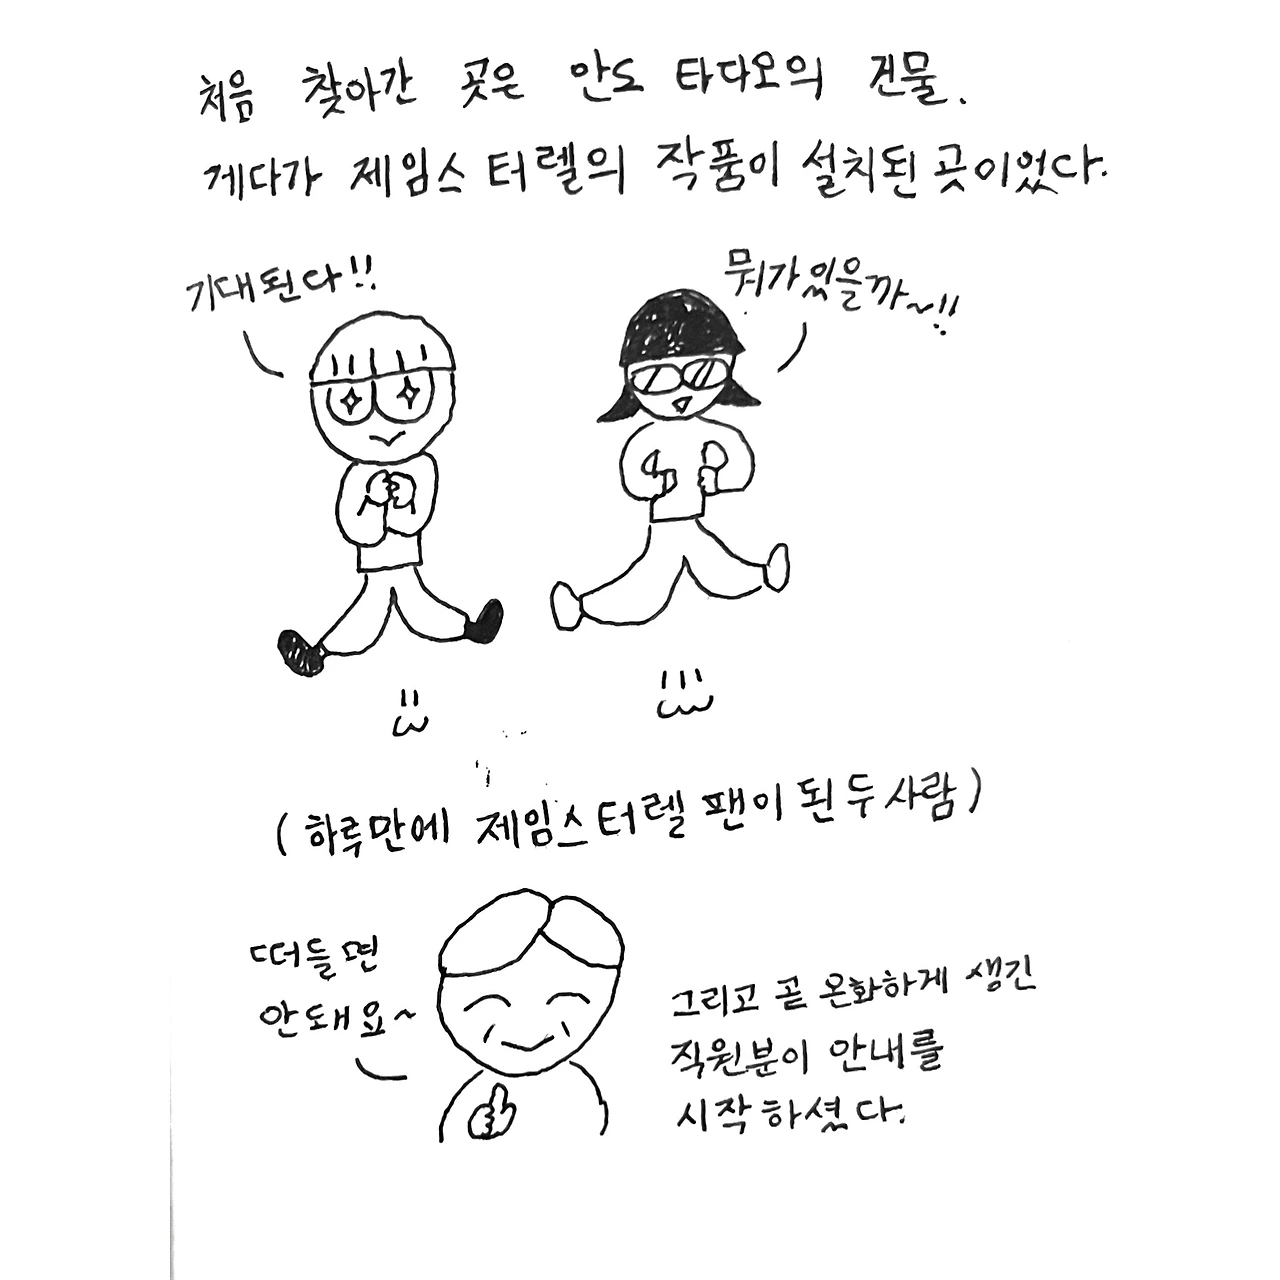 처음 찾아간 곳은 안도 타다오의 건물.
게다가 제임스 터렐의 작품이 설치된 곳이었다.
기대된다!!
뭐가있을까~!!
(하루만에 제임스터렐 팬이 된 두 사람)
떠들면
안돼요~
그리고 곧 온화하게 생긴
직원분이 안내를
시작하셨다.